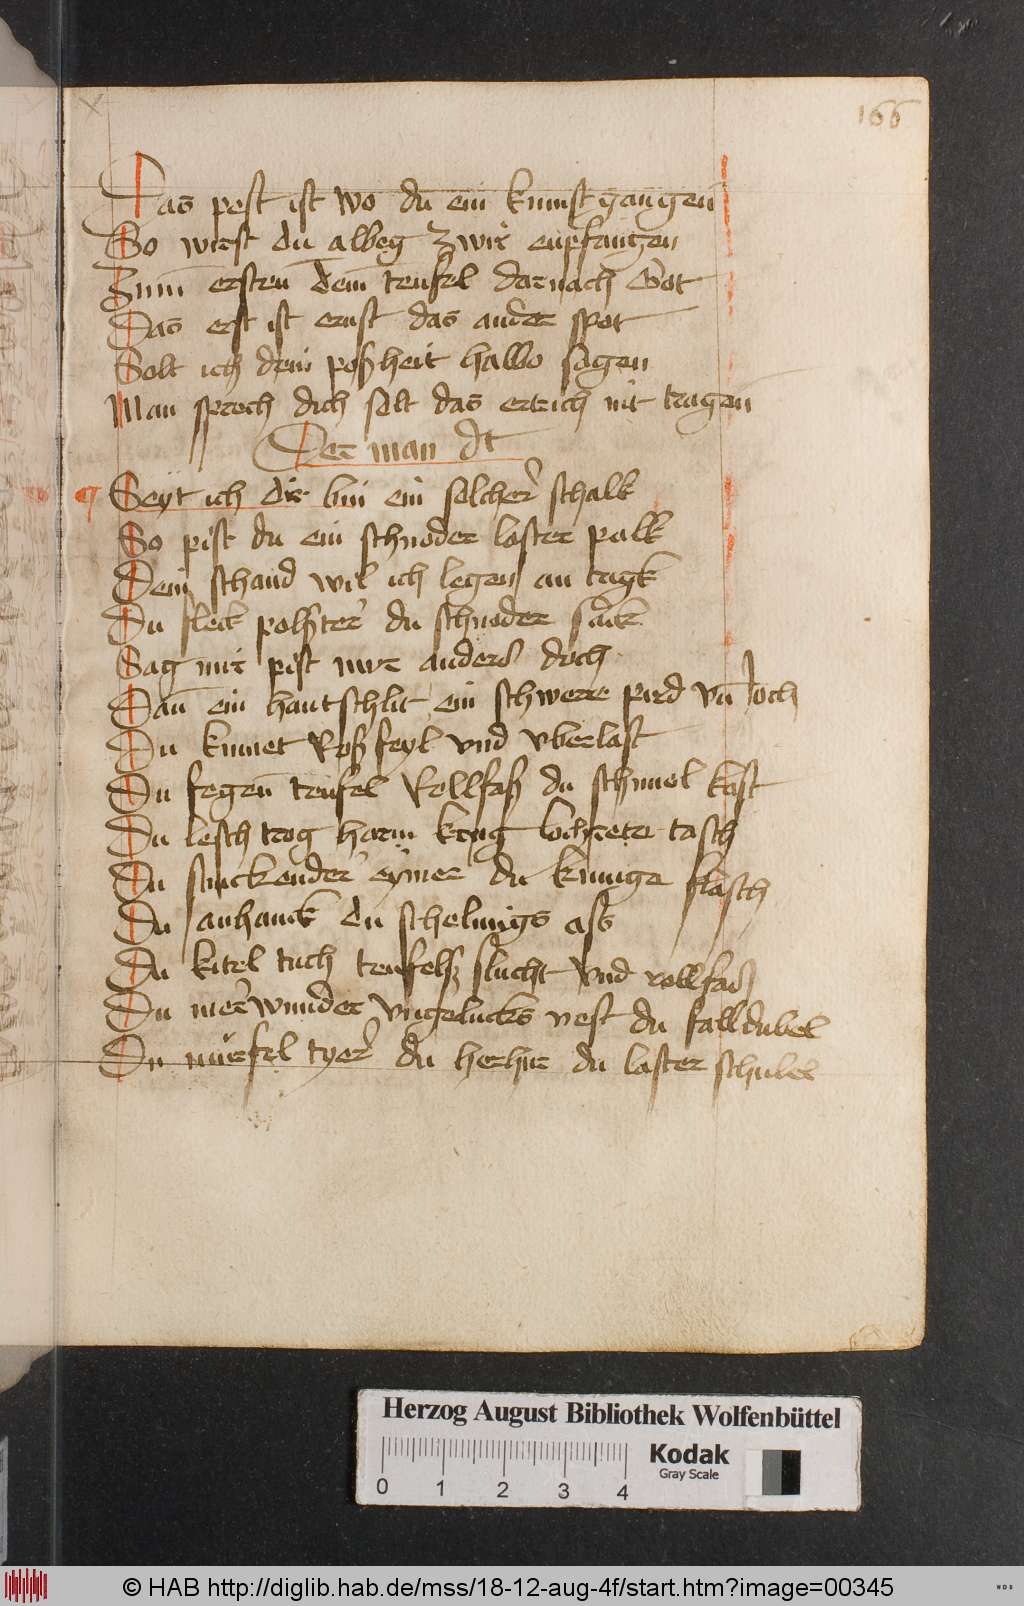 166
Das pest ist wo du ein kumst gangen
So wirst du albeg zwir enpfangen
Zum ersten dem teufel darnach Got
Das erst ist ernst das ander spot
Solt ich dein poßheit halbo sagen
Man sprech dich solt das ertrich nit tragen
Der man dt
Seyt ich dir bin ein solcher schalk
So pist du ein schnoder laster palk
Dein schand wil ich legen an tagk
Du fleck polster du schnoder sack
Sag mir pist nur anders doch
Dan ein hautschlit ein schwere pird vn Joch
Du kumet Roßfeyl vnd vberlast
Du fegen teufel Rollfaß du schimel kast
Du lesch trog harm krug lochrete tasch
Du stinckender eymer du kunige flasch
Du anhanck du schelmigs aß
Du kitel tuch teufelß flucht vnd rollfaß
Du merwunder vngelucks nest du falldubel
Du murfel tyer du herhur du laster schubel
Herzog August Bibliothek Wolfenbüttel
0 1 2 3 4
Kodak
Gray Scale
© HAB http://diglib.hab.de/mss/18-12-aug-4f/start.htm?image=00345